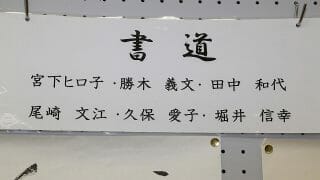 書道
宮下ヒロ子・勝木 義文・田中 和代
尾崎 文江・久保 愛子・堀井 信幸